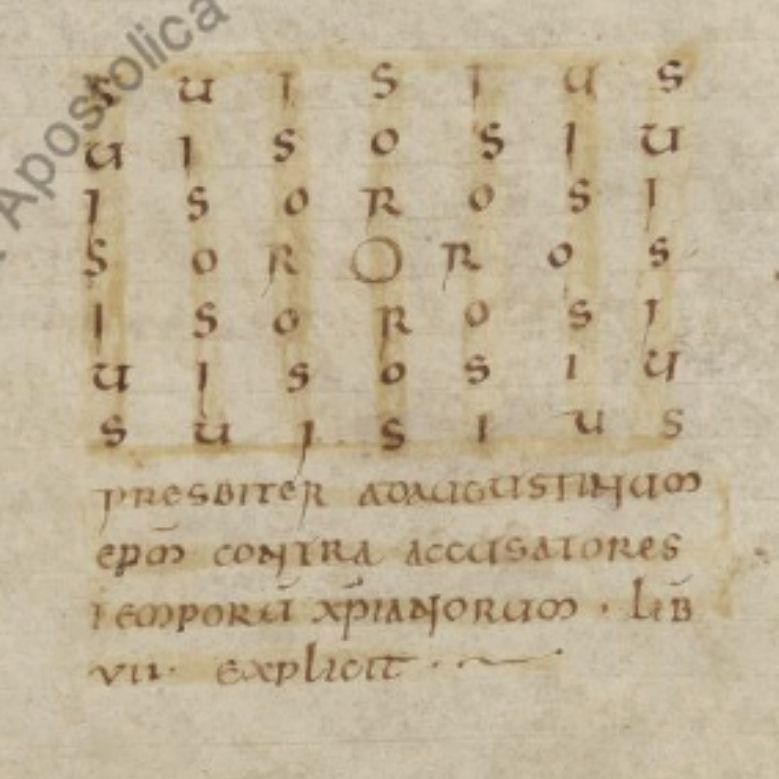 Apostolica
S U I S I U S
U I S O S I U
I S O R O S I
S O R O R O S
I S O R O S I
U I S O S I U
S U I S I U S
PRESBITER ADAUGUSTINUM
EPM̄ CONTRA ACCUSATORES
TEMPORŪ XP̄IANORUM · LIB̄
VII · EXPLICIT ·